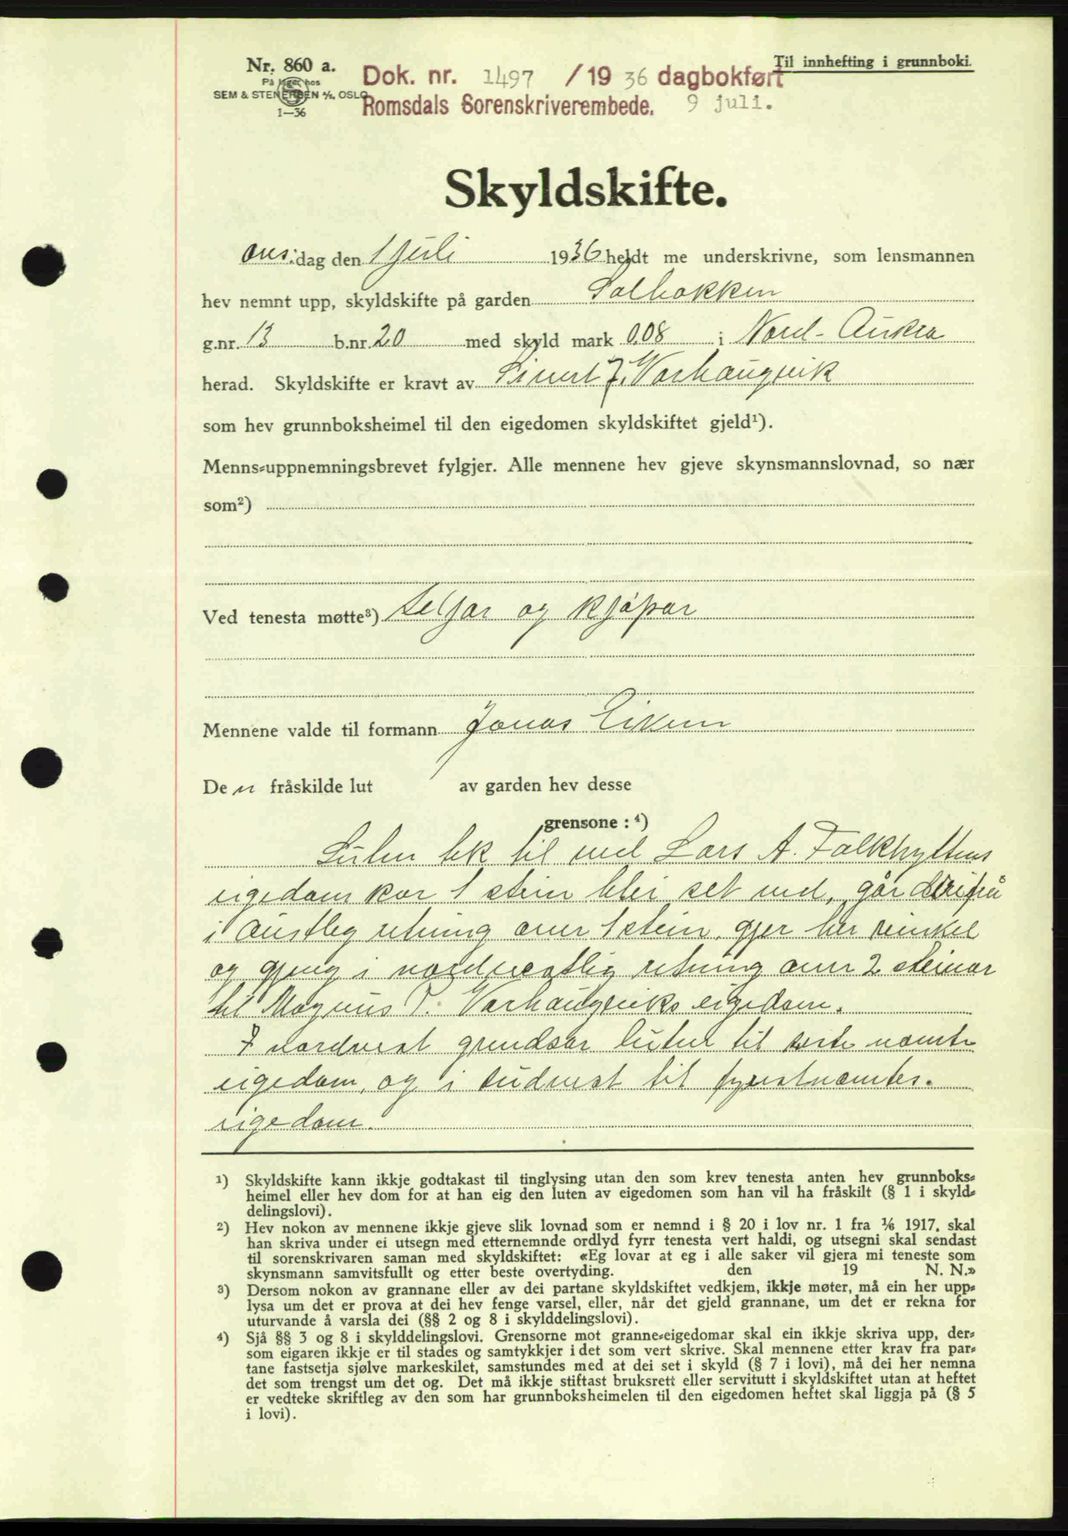 Nr. 860 a.
På lager hos
SEM & STENERSEN A/S, OSLO
1—36
Dok. nr. 1497 /1936 dagbokført
Romsdals Sorenskriverembede. 9 juli.
Til innhefting i grunnboki.
Skyldskifte.
ons.dag den 1 juli 1936 heldt me underskrivne, som lensmannen
hev nemnt upp, skyldskifte på garden Solbakken
g.nr. 13 b.nr. 20 med skyld mark 0,08 i Nord-Aukra
herad. Skyldskifte er kravt av Sivert J. Varhaugvik
som hev grunnboksheimel til den eigedomen skyldskiftet gjeld¹).
Menns-uppnemningsbrevet fylgjer. Alle mennene hev gjeve skynsmannslovnad, so nær
som²)
Ved tenesta møtte³) seljar og kjøpar
Mennene valde til formann Jonas Eikem
De n fråskilde lut av garden hev desse
grensone : ⁴)
Luten tek til ved Lars A. Falkhyttens
eigedom kor 1 stein blei set ned, går derifrå
i austleg retning over 1 stein, gjer her vinkel
og gjeng i nordvestlig retning over 2 steinar
til Magnus P. Varhaugviks eigedom.
I nordvest grendsar luten til siste nemte
eigedom, og i sudvest til fyrstnemtes.
eigedom.
¹) Skyldskifte kann ikkje godtakast til tinglysing utan den som krev tenesta anten hev grunnboks-
heimel eller hev dom for at han eig den luten av eigedomen som han vil ha fråskilt (§ 1 i skyld-
delingslovi).
²) Hev nokon av mennene ikkje gjeve slik lovnad som er nemnd i § 20 i lov nr. 1 fra ¹/₆ 1917, skal
han skriva under ei utsegn med etternemnde ordlyd fyrr tenesta vert haldi, og utsegni skal sendast
til sorenskrivaren saman med skyldskiftet: «Eg lovar at eg i alle saker vil gjera mi teneste som
skynsmann samvitsfullt og etter beste overtyding. den 19 N. N.»
³) Dersom nokon av grannane eller av dei partane skyldskiftet vedkjem, ikkje møter, må ein her upp-
lysa um det er prova at dei hev fenge varsel, eller, når det gjeld grannane, um det er rekna for
uturvande å varsla dei (§§ 2 og 8 i skylddelingslovi).
⁴) Sjå §§ 3 og 8 i skylddelingslovi. Grensorne mot granne-eigedomar skal ein ikkje skriva upp, der-
som eigaren ikkje er til stades og samtykkjer i det som vert skrive. Skal mennene etter krav fra par-
tane fastsetja sjølve markeskilet, samstundes med at dei set i skyld (§ 7 i lovi), må dei her nemna
det som trengst um det og. Det må ikkje stiftast bruksrett eller servitutt i skyldskiftet utan at heftet
er vedteke skriftleg av den som har grunnboksheimelen til den eigedomen heftet skal liggja på (§ 5
i lovi).